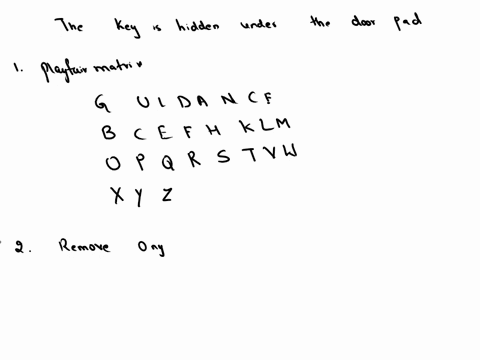 The key is hidden under the door pad
1. Playfair matrix
G U I D A N C E
B C E F H K L M
O P Q R S T V W
X Y Z
2. Remove Any